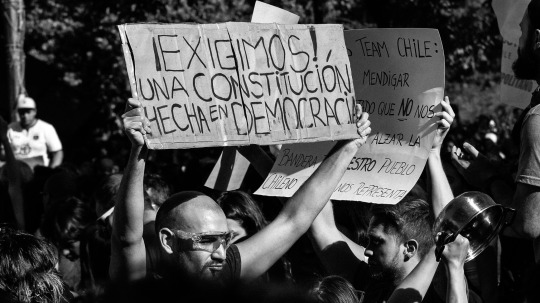 ¡EXIGIMOS!
UNA CONSTITUCIÓN
HECHA EN DEMOCRACIA
TEAM CHILE:
MENDIGAR
QUE NO NOS
ALZAR LA
BANDERA
PUEBLO
CHILENO NOS REPRESENTA